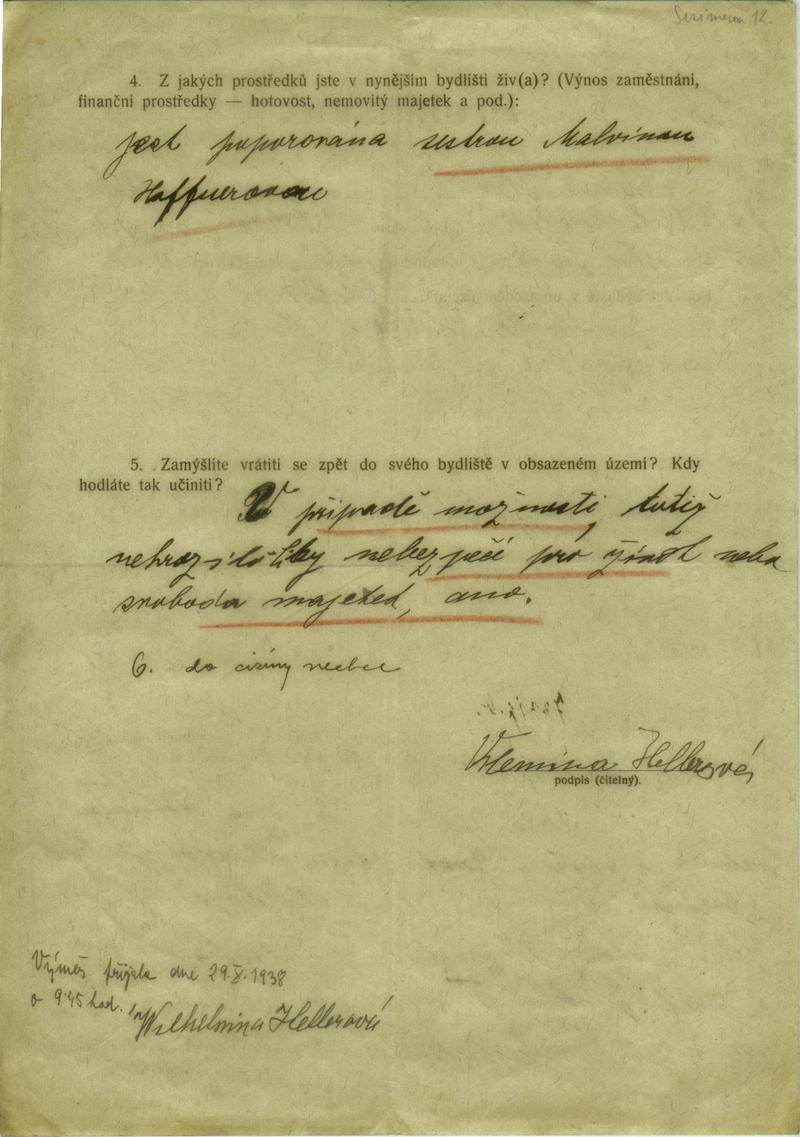 Sezimova 12.
4. Z jakých prostředků jste v nynějším bydlišti živ(a)? (Výnos zaměstnání,
finanční prostředky — hotovost, nemovitý majetek a pod.):
jest poporována sestrou Malvínou
Haffnerovou
5. Zamýšlíte vrátiti se zpět do svého bydliště v obsazeném území? Kdy
hodláte tak učiniti?
V případě možnosti, totiž
nehrozilo-li by nebezpečí pro život neba
svoboda majeted, ano.
6. do ciziny nechce
Vilemina Hellerová
podpis (čitelný).
Výměr přijala dne 29.X.1938
o 9.45 hod.
Wilhelmina Hellerová